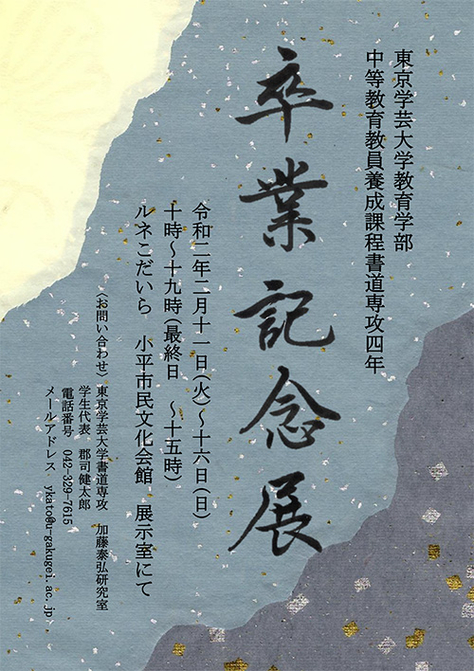 東京学芸大学教育学部
中等教育教員養成課程書道専攻四年
卒業記念展
令和二年二月十一日(火)～十六日(日)
十時～十九時(最終日　～十五時)
ルネこだいら　小平市民文化会館　展示室にて
(お問い合わせ)東京学芸大学書道専攻　加藤泰弘研究室
学生代表　郡司健太郎
電話番号　042-329-7615
メールアドレス　ykato@u-gakugei.ac.jp